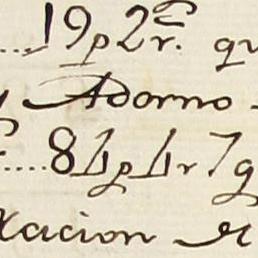 ....19p2r. qu
y Adorno
....84p4r7q
xacion de